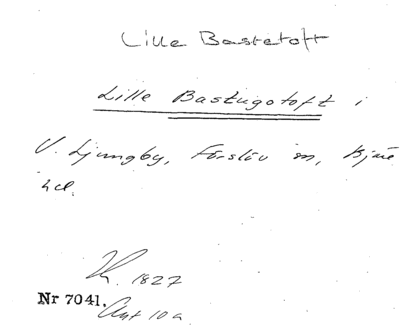 Lille Bastetoft
Lille Bastugotoft i
V. Ljungby, Förslöv sn, Bjäre
hd.
1827
Nr 7041.
Ant 10a